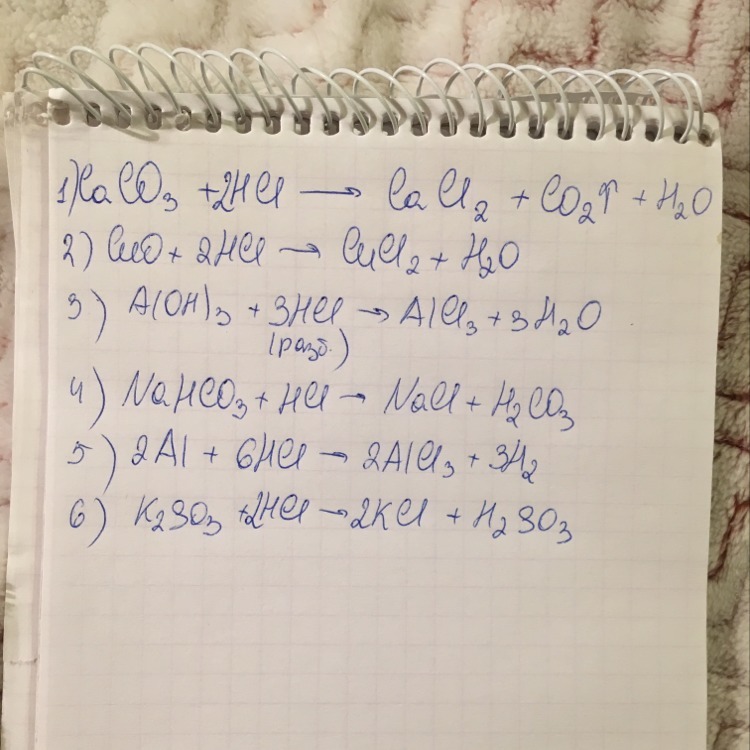 1) CaCO₃ + 2HCl → CaCl₂ + CO₂↑ + H₂O
2) CuO + 2HCl → CuCl₂ + H₂O
3) Al(OH)₃ + 3HCl → AlCl₃ + 3H₂O
(разб.)
4) NaHCO₃ + HCl → NaCl + H₂CO₃
5) 2Al + 6HCl → 2AlCl₃ + 3H₂
6) K₂SO₃ + 2HCl → 2KCl + H₂SO₃